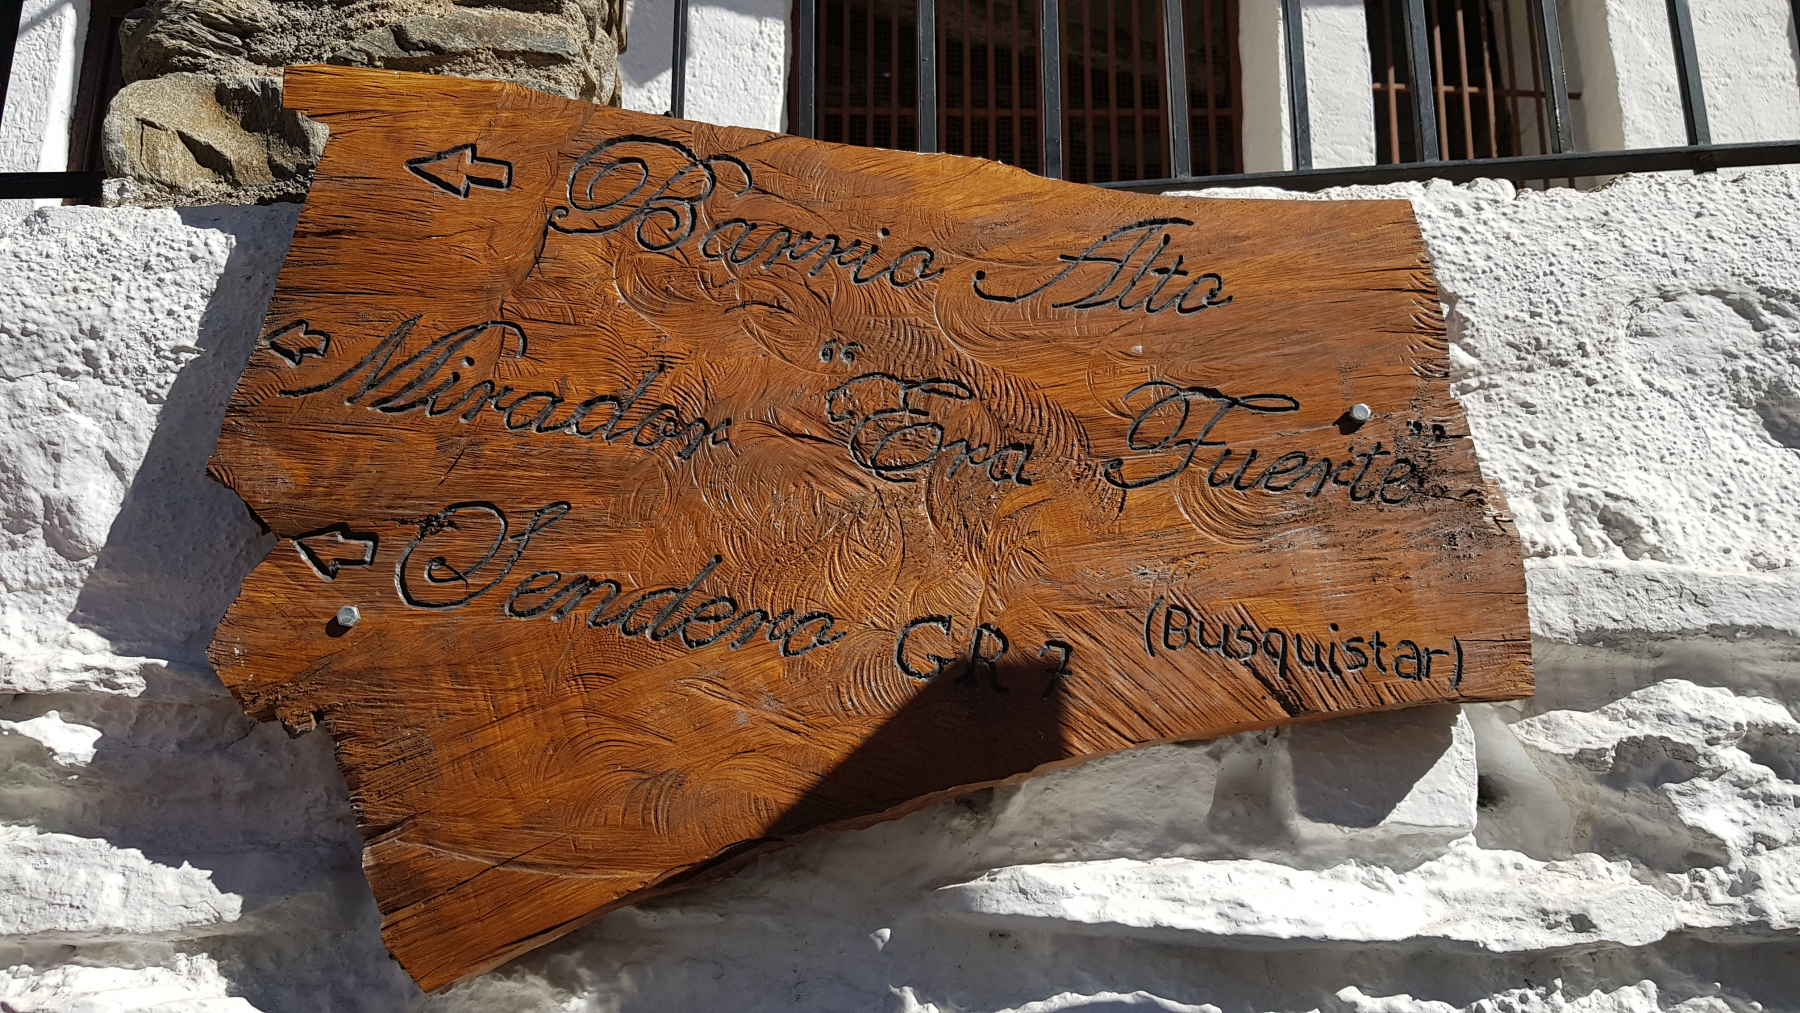 Barrio Alto
Mirador "Era Fuerte"
Sendero GR 7 (Busquistar)